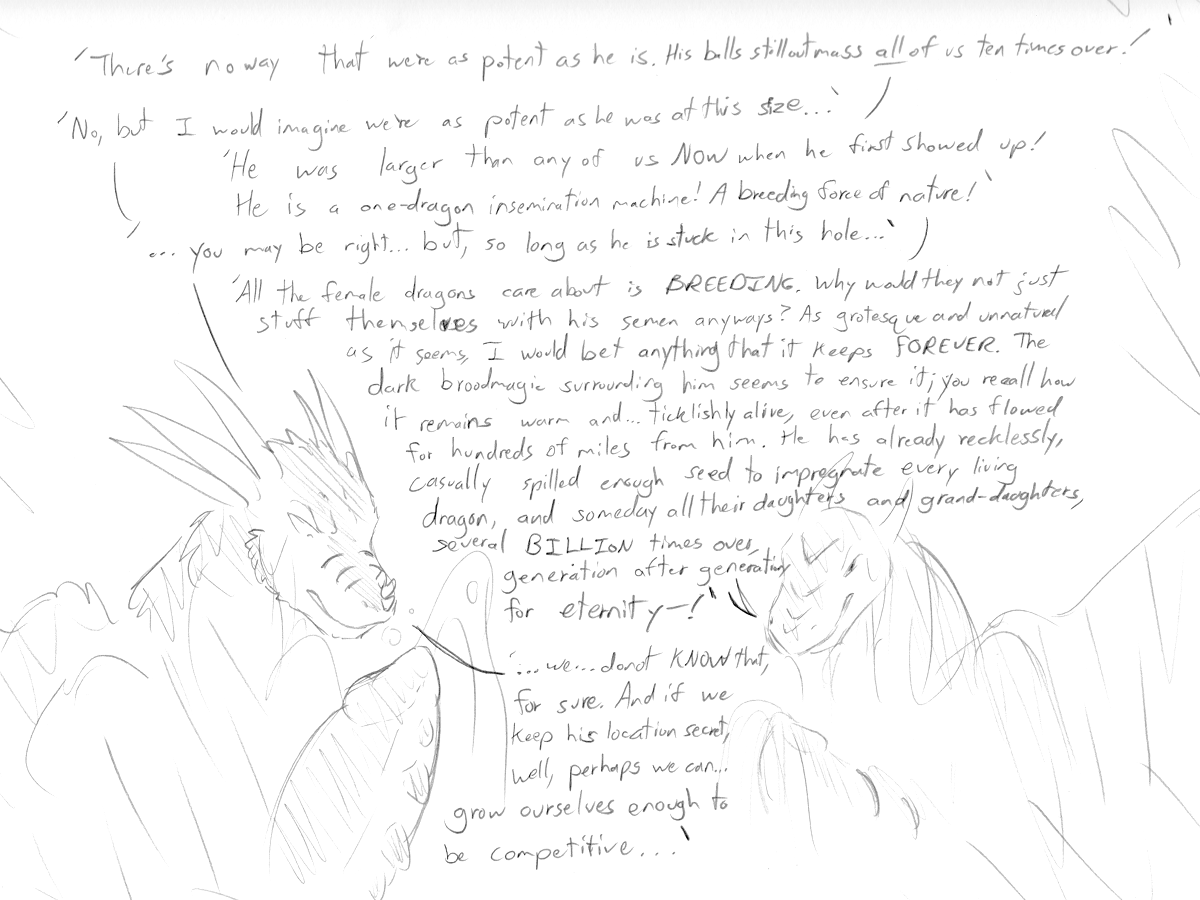 'There's no way that we're as potent as he is. His balls still outmass all of us ten times over!'
'No, but I would imagine we're as potent as he was at this size...'
'He was larger than any of us NOW when he first showed up!
He is a one-dragon insemination machine! A breeding force of nature!'
'... you may be right... but, so long as he is stuck in this hole...'
'All the female dragons care about is BREEDING. Why would they not just
stuff themselves with his semen anyways? As grotesque and unnatural
as it seems, I would bet anything that it keeps FOREVER. The
dark broodmagic surrounding him seems to ensure it; you recall how
it remains warm and... ticklishly alive, even after it has flowed
for hundreds of miles from him. He has already recklessly,
casually spilled enough seed to impregnate every living
dragon, and someday all their daughters and grand-daughters,
several BILLION times over,
generation after generation
for eternity—!'
'...we...do not KNOW that,
for sure. And if we
keep his location secret,
well, perhaps we can...
grow ourselves enough to
be competitive...'